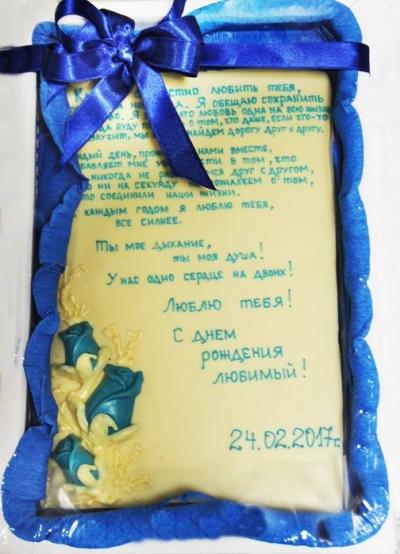 К стно любить тебя,
на а. Я обещаю сохранить
во. Я что любовь одна на всю жизнь
да буду п о том, что даже, если что-то
лучит, мы найдем дорогу друг к другу.
ждый день, про нами вместе,
бавляет мне у сти в том, что
никогда не ра мся друг с другом,
о ни на секунду жалеем о том,
что соединили наши жизни.
С каждым годом я люблю тебя,
все сильнее.
Ты мое дыхание,
ты моя душа!
У нас одно сердце на двоих!
Люблю тебя!
С днем
рождения
любимый!
24.02.2017г.